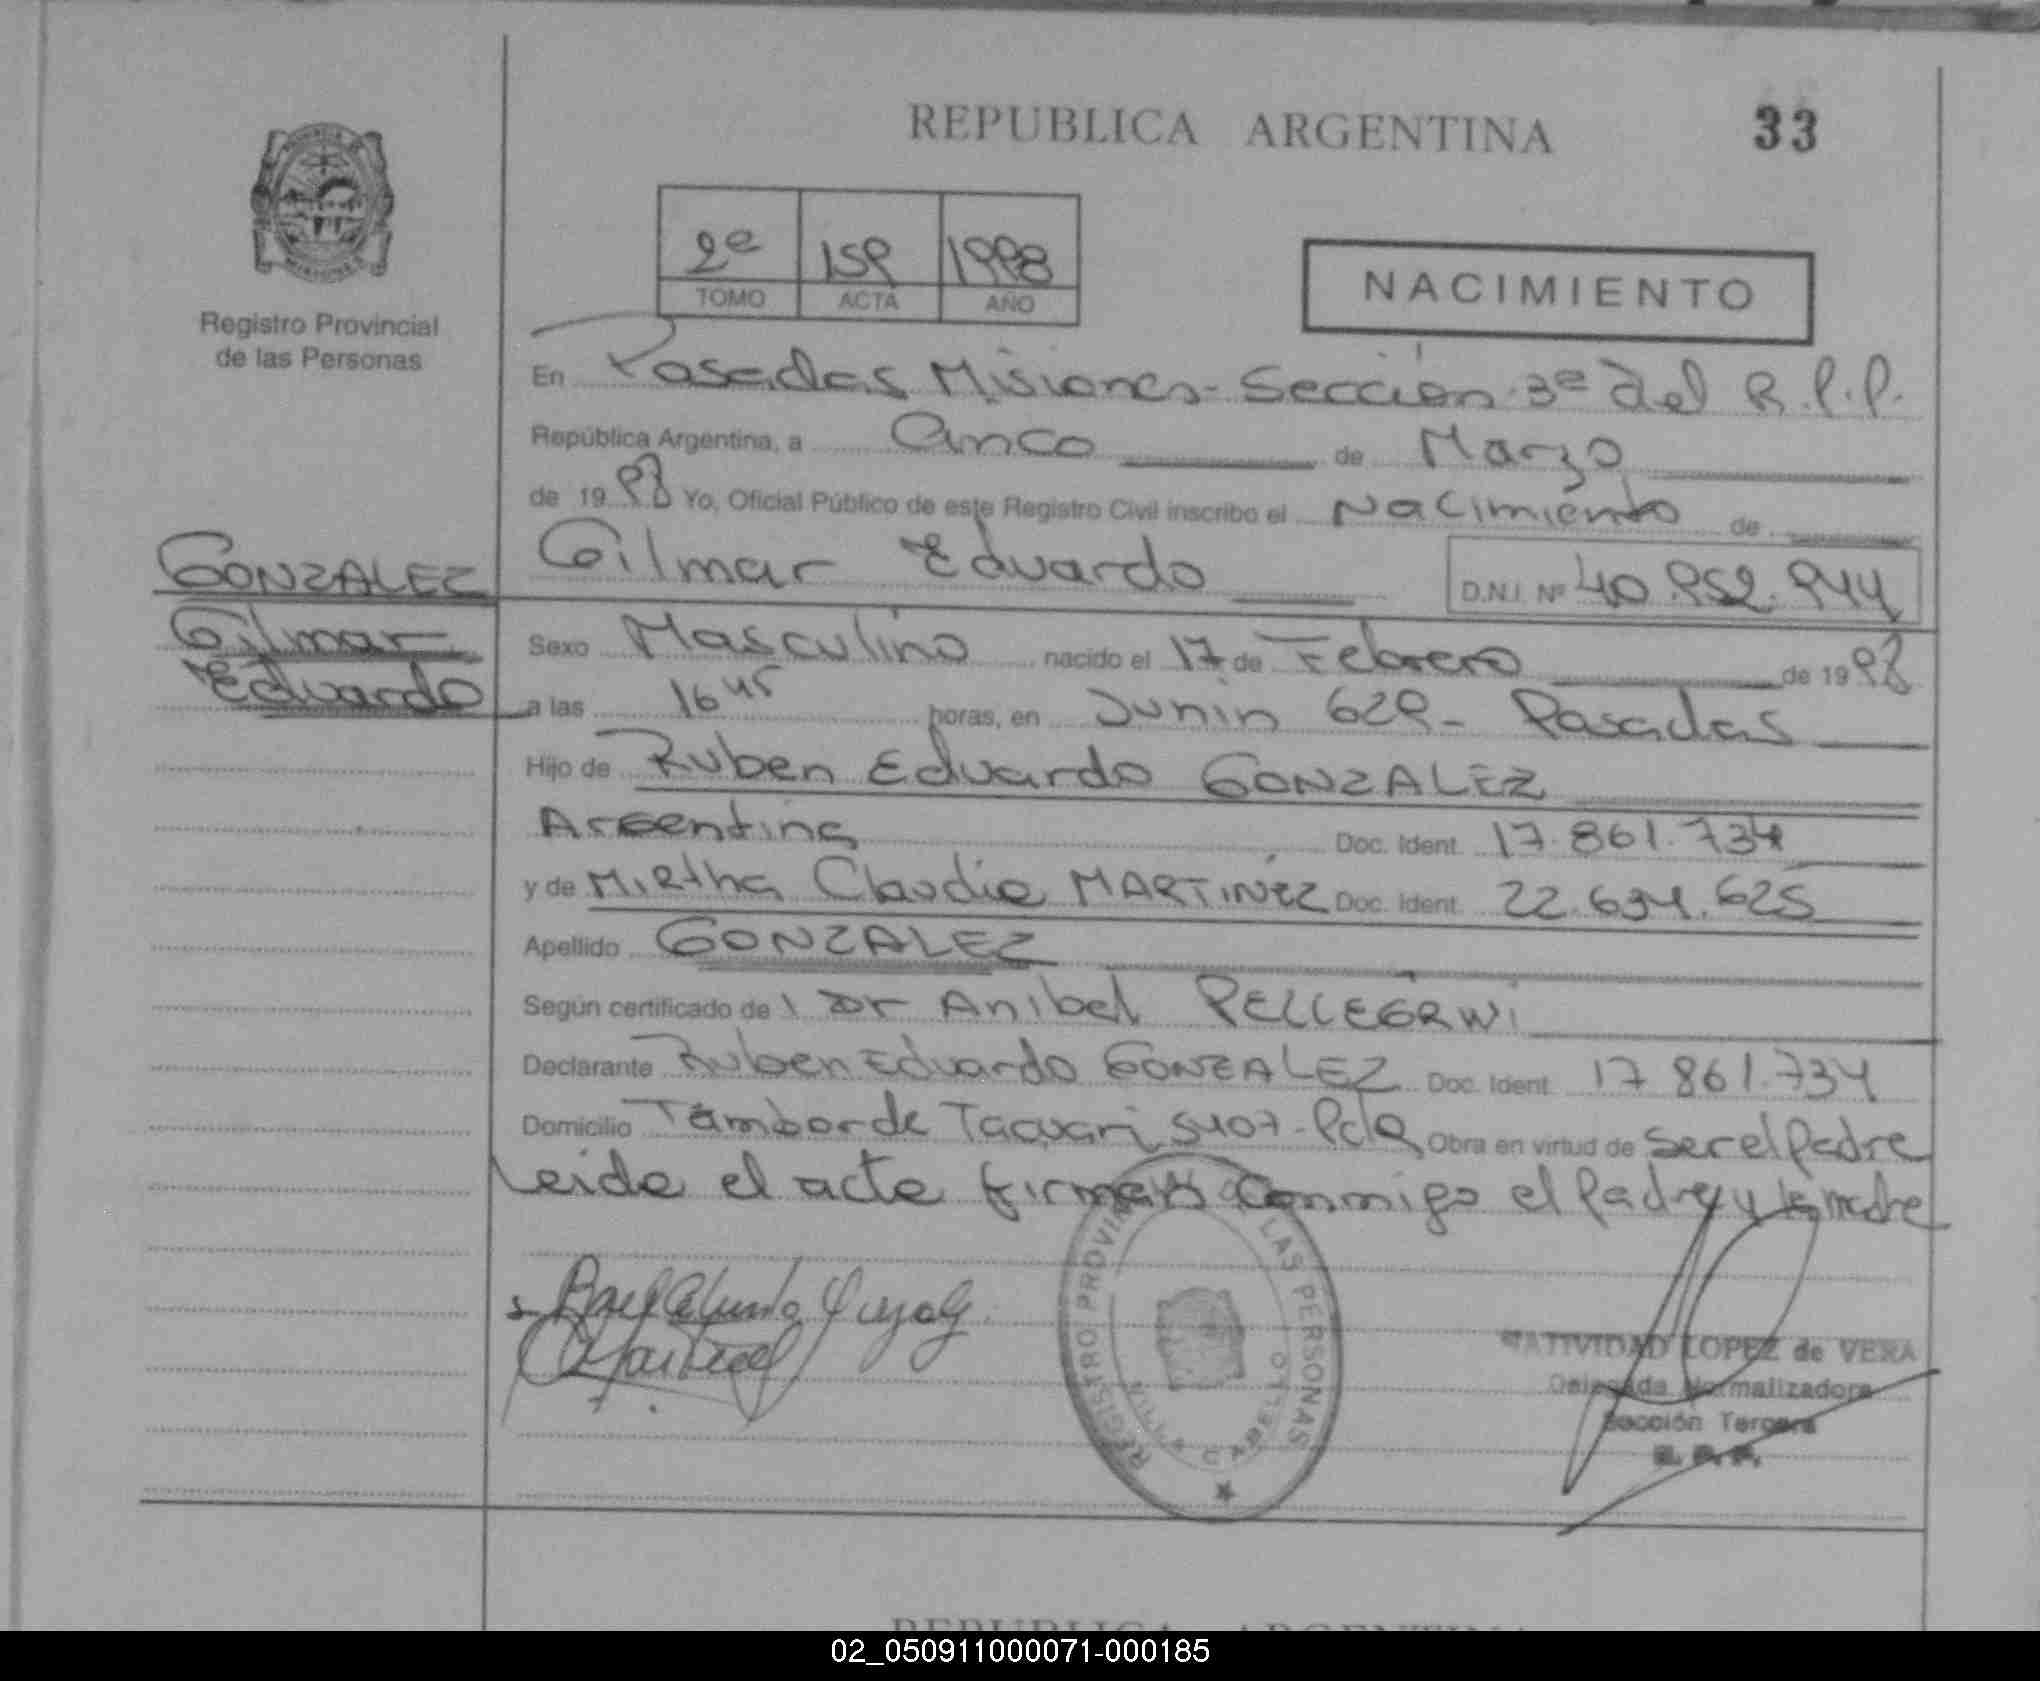 REPUBLICA ARGENTINA
33
Registro Provincial
de las Personas
2º 159 1998
TOMO ACTA AÑO
NACIMIENTO
En Posadas Misiones - Sección 3ª del R.P.P.
República Argentina, a Cinco de Marzo
de 1998 Yo, Oficial Público de este Registro Civil inscribo el Nacimiento de
GONZALEZ
Gilmar
Eduardo
Gilmar Eduardo D.N.I. Nº 40.952.944
Sexo Masculino nacido el 17 de Febrero de 1998
a las 16 45 horas, en Junin 629 - Posadas
Hijo de Ruben Eduardo GONZALEZ
Argentina Doc. Ident. 17.861.734
y de Mirtha Claudia MARTINEZ Doc. Ident. 22.634.625
Apellido GONZALEZ
Según certificado de l Dr Anibal PELLEGRINI
Declarante Ruben Eduardo GONZALEZ Doc. Ident. 17 861.734
Domicilio Tambor de Tacuari 5407 - Pdas Obra en virtud de ser el Padre
Leida el acta firman conmigo el Padre y la madre
REGISTRO PROVINCIAL LAS PERSONAS
VILLA CABELLO
NATIVIDAD LOPEZ de VERA
Delegada Normalizadora
Sección Tercera
R. P. P.
REPUBLICA ARGENTINA
02_050911000071-000185